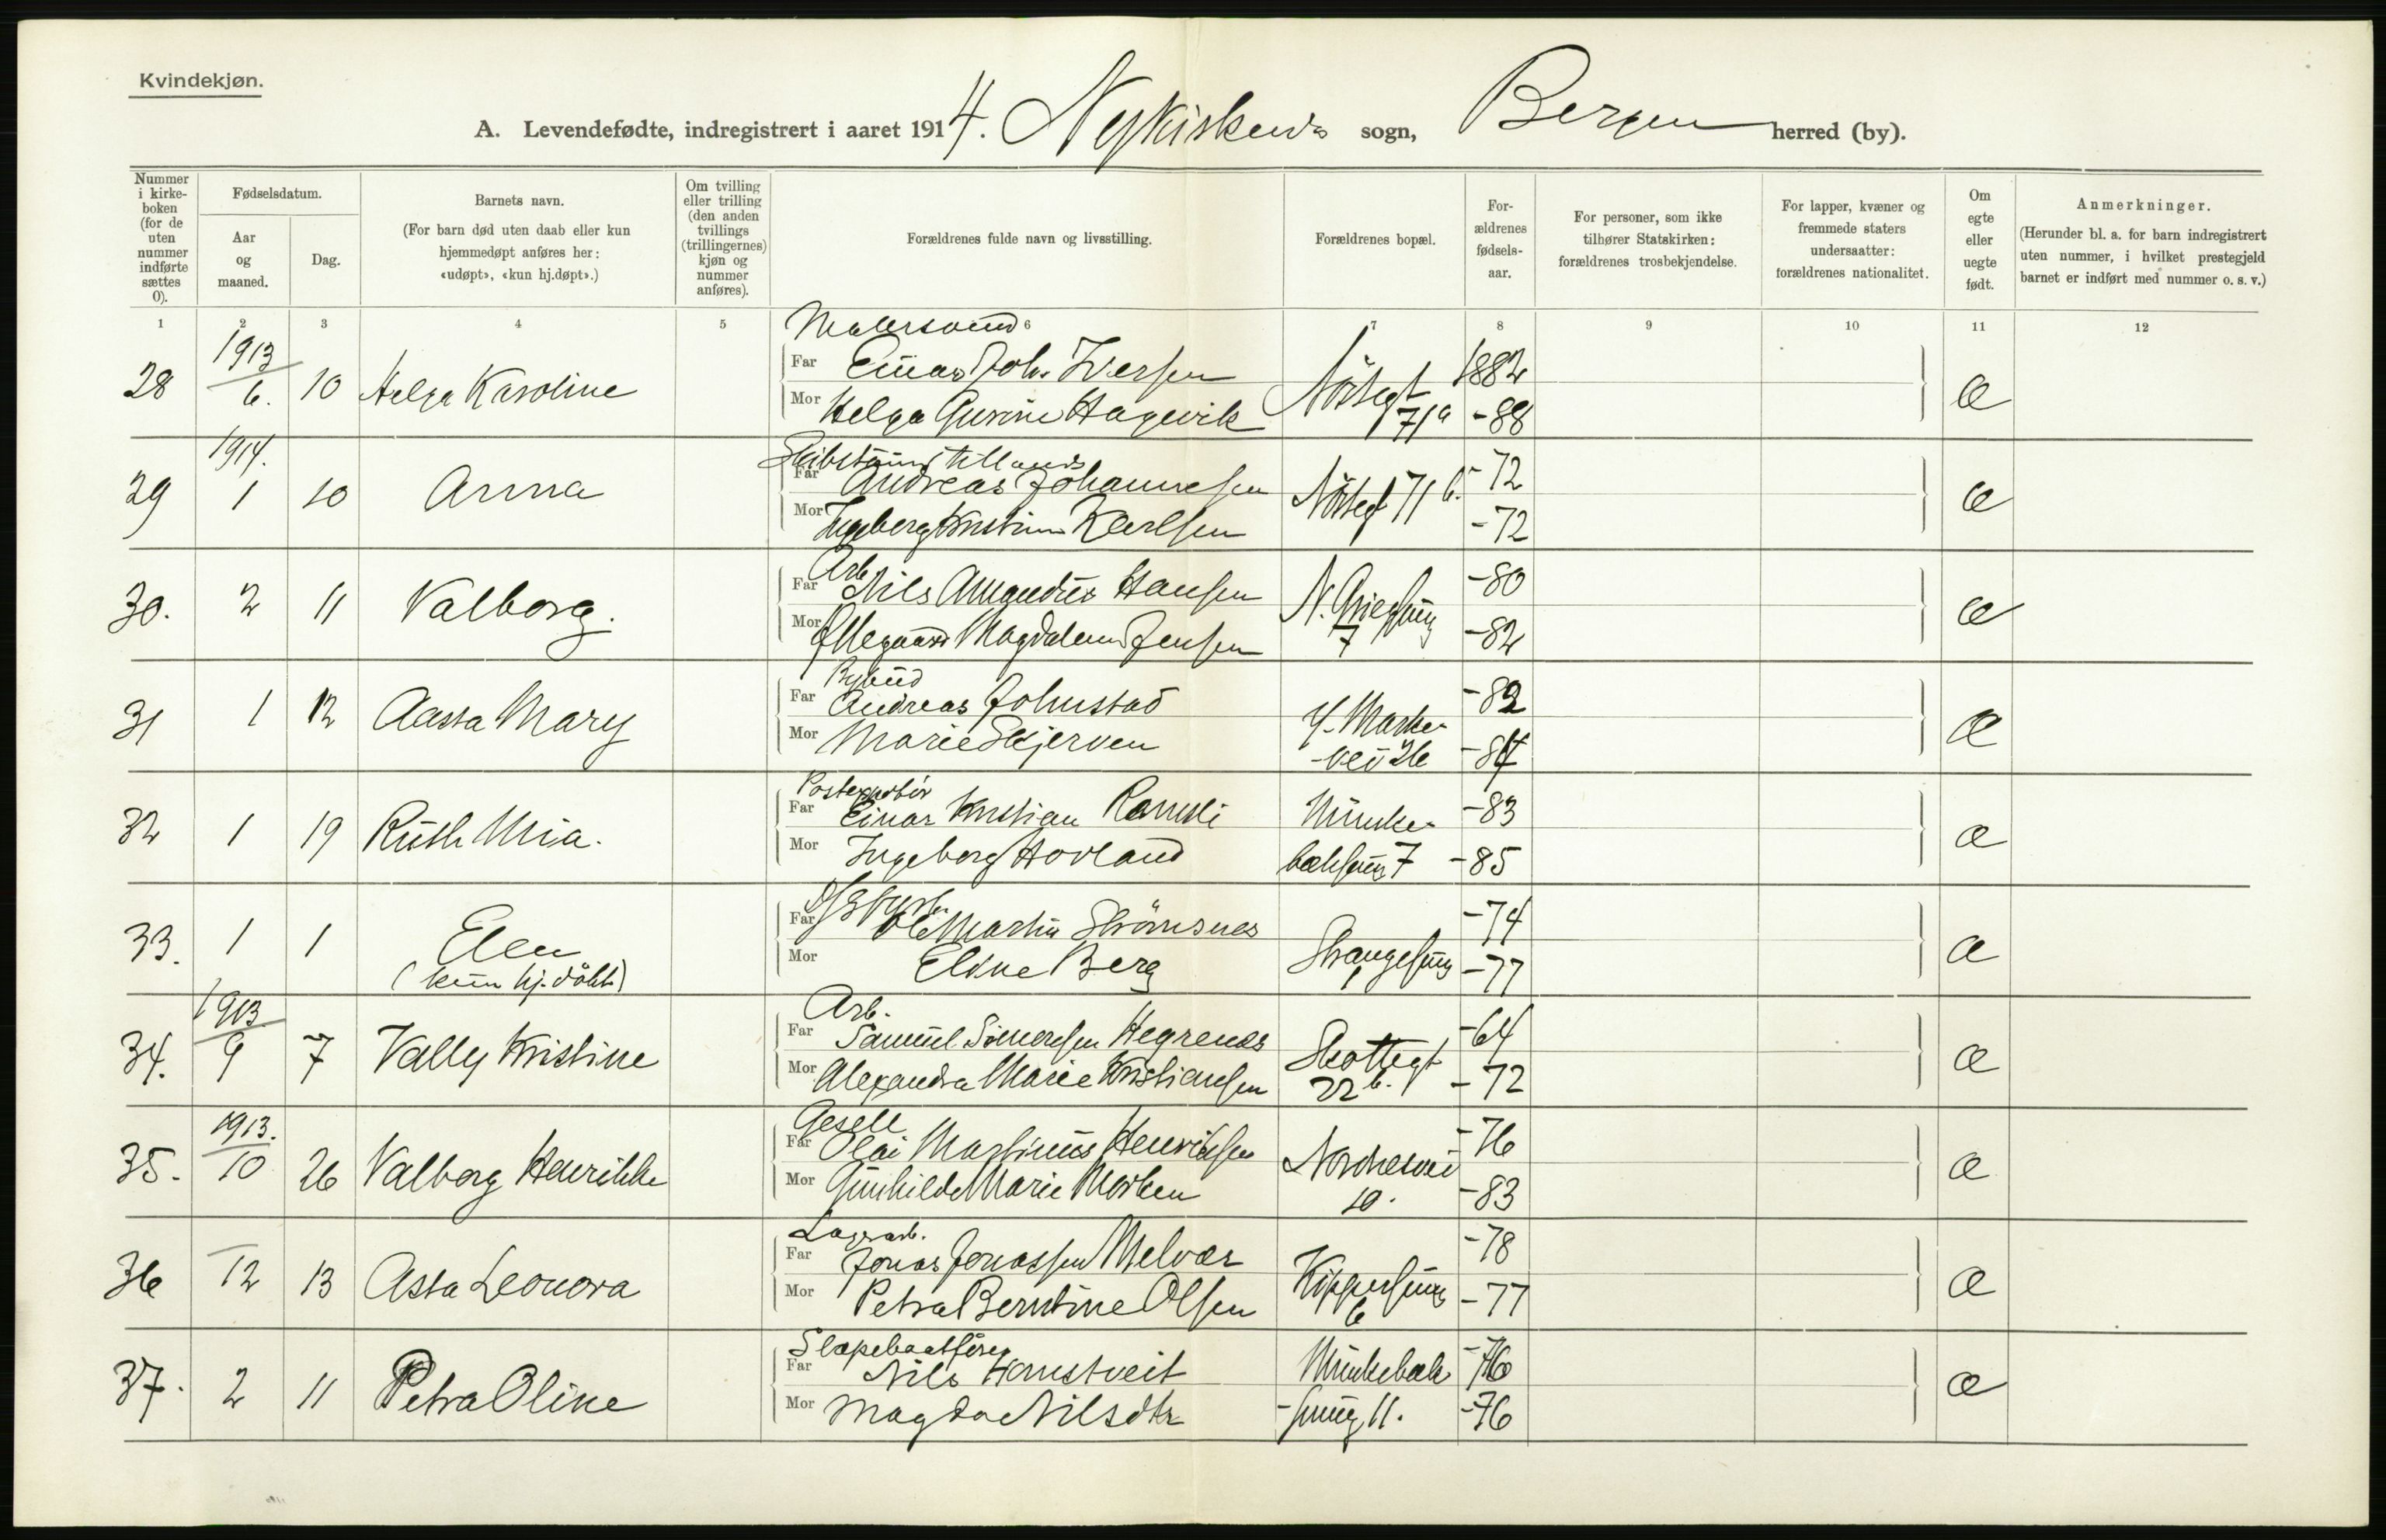 Kvindekjøn.
A. Levendefødte, indregistrert i aaret 1914. Nykirkens sogn, Bergen herred (by).
Nummer i kirkeboken (for de uten nummer indførte sættes 0).
Fødselsdatum.
Aar og maaned.
Dag.
Barnets navn.
(For barn død uten daab eller kun hjemmedøpt anføres her: «udøpt», «kun hj.døpt».)
Om tvilling eller trilling (den anden tvillings (trillingernes) kjøn og nummer anføres).
Forældrenes fulde navn og livsstilling.
Forældrenes bopæl.
Forældrenes fødselsaar.
For personer, som ikke tilhører Statskirken: forældrenes trosbekjendelse.
For lapper, kvæner og fremmede staters undersaatter: forældrenes nationalitet.
Om egte eller uegte født.
Anmerkninger.
(Herunder bl. a. for barn indregistrert uten nummer, i hvilket prestegjeld barnet er indført med nummer o. s. v.)
1 2 3 4 5 6 7 8 9 10 11 12
Malersvend
28 1913 6. 10 Helga Karoline
Far Einar Joh. Iversen 1882
Mor Helga Gurine Hagevik Nöstegt 71a -88 æ
29 1914. 1 10 Anna
Far Andreas Johannesen Nöstegt 71 b. -72
Mor Ingeborg Kristine Karlsen -72 æ
Arb.
30. 2 11 Valborg.
Far Nils Amandus Hansen -80
Mor Magdalene Jensen 7 -82 æ
Bybud
31 1 12 Aasta Mary
Far Andreas Johnstad -82
Mor Marie Skjerven Y. Markevei 26 -84 æ
Postexpeditör
32 1 19 Ruth Mia.
Far Einar Kristian Munkebæksmug 7 -83
Mor Ingeborg Hovland -85 æ
33. 1 1 Elen (kun hj. döbt)
Far Ole Martin Strömsnes -74
Mor Eline Berg Strangesmug 1 -77 æ
Arb.
34. 1913 9 7 Vally Kristine
Far Samuel Simonsen Hegrenes -64
Mor Alexandra Marie Kristiansen Skottegt 22 b. -72 æ
Gesell
35. 1913. 10 26 Valborg Henrikke
Far Olai Martinus Henriksen -76
Mor Gunhilde Marie Morken Nordnesvei 10. -83 æ
Lagerarb.
36 12 13 Asta Leonora
Far Jonas Jonassen Melvær -78
Mor Petra Berntine Olsen Kippersmug 6 -77 æ
Slæpebaatförer
37. 2 11 Petra Oline
Far Nils Hamstveit Munkebæksmug 11. -76
Mor Magda Nilsdtr -76 æ